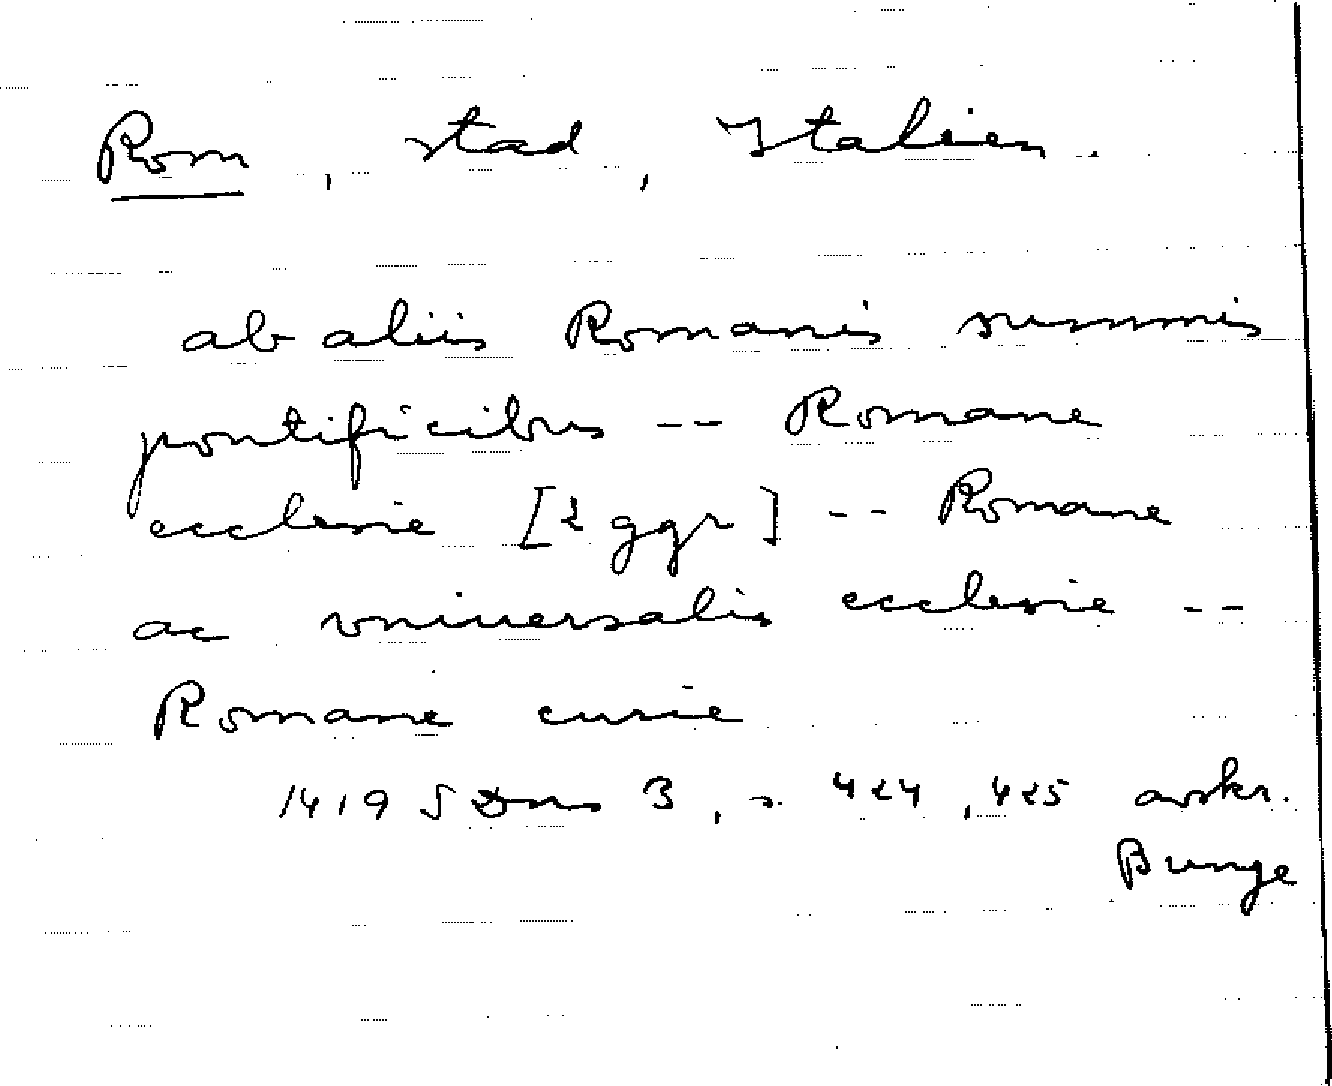 Rom, stad, Italien.
ab aliis Romanis summis
pontificibus -- Romane
ecclesie [2 ggr] -- Romane
ac vniuersalis ecclesie --
Romane curie
1419 SDns 3, s. 424, 425 avskr.
Bunge